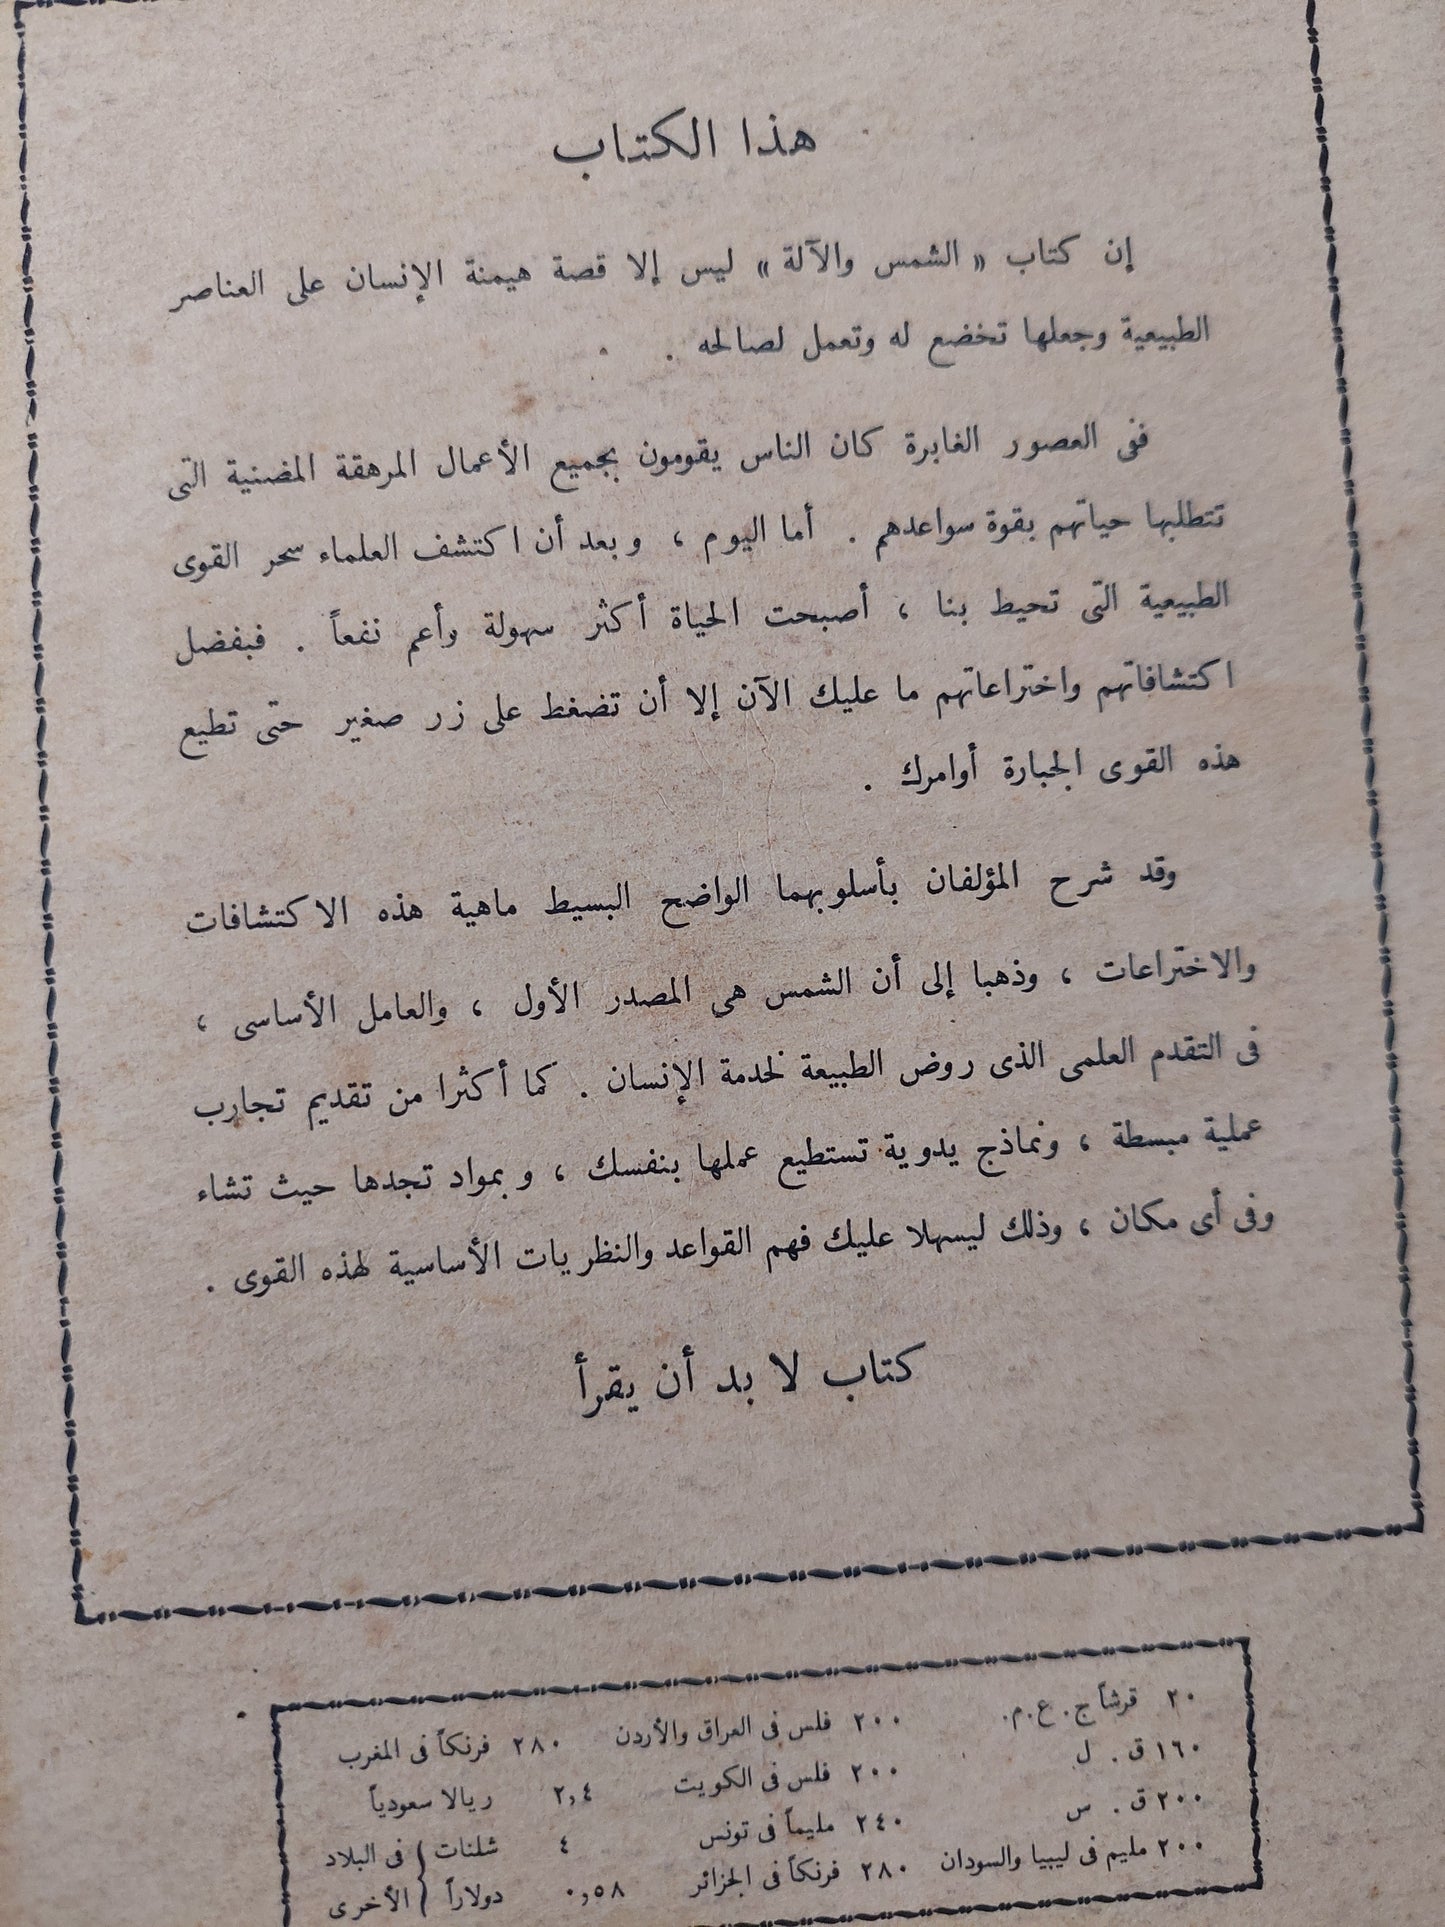 هذا الكتاب
إن كتاب « الشمس والآلة » ليس إلا قصة هيمنة الإنسان على العناصر
الطبيعية وجعلها تخضع له وتعمل لصالحه .
ففى العصور الغابرة كان الناس يقومون بجميع الأعمال المرهقة المضنية التى
تتطلبها حياتهم بقوة سواعدهم . أما اليوم ، وبعد أن اكتشف العلماء سحر القوى
الطبيعية التى تحيط بنا ، أصبحت الحياة أكثر سهولة وأعم نفعاً . فبفضل
اكتشافاتهم واختراعاتهم ما عليك الآن إلا أن تضغط على زر صغير حتى تطيع
هذه القوى الجبارة أوامرك .
وقد شرح المؤلفان بأسلوبهما الواضح البسيط ماهية هذه الاكتشافات
والاختراعات ، وذهبا إلى أن الشمس هى المصدر الأول ، والعامل الأساسى ،
فى التقدم العلمى الذى روض الطبيعة لخدمة الإنسان . كما أكثرا من تقديم تجارب
عملية مبسطة ، ونماذج يدوية تستطيع عملها بنفسك ، وبمواد تجدها حيث تشاء
وفى أى مكان ، وذلك ليسهلا عليك فهم القواعد والنظريات الأساسية لهذه القوى .
كتاب لا بد أن يقرأ
٢٠ قرشاً ج. ع. م. ٢٠٠ فلس فى العراق والأردن ٢٨٠ فرنكاً فى المغرب
١٦٠ ق . ل ٢٠٠ فلس فى الكويت ٢,٤ ريالا سعودياً
٢٠٠ ق . س ٢٤٠ مليماً فى تونس ٤ شلنات } فى البلاد
٢٠٠ مليم فى ليبيا والسودان ٢٨٠ فرنكاً فى الجزائر ٠,٥٨ دولاراً } الأخرى